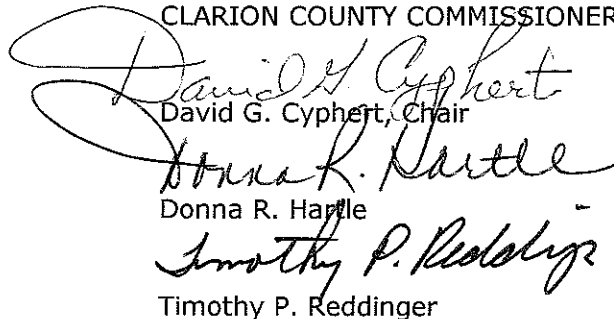 CLARION COUNTY COMMISSIONER
David G. Cyphert
David G. Cyphert, Chair
Donna R. Hartle
Donna R. Hartle
Timothy P. Reddinger
Timothy P. Reddinger